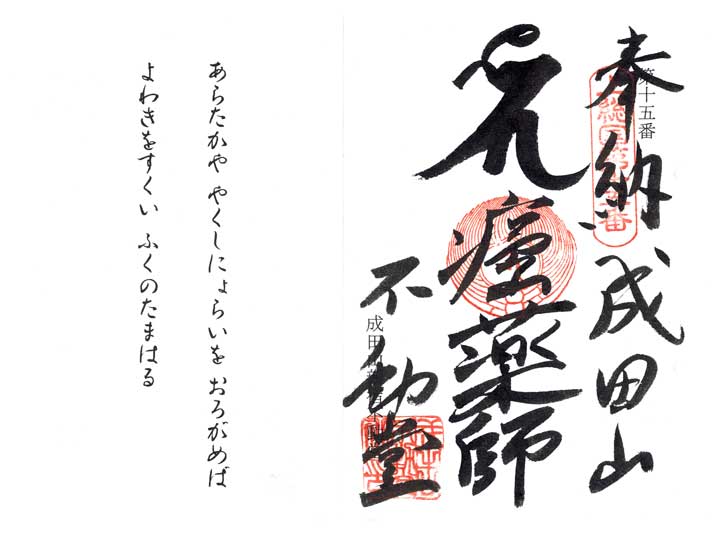 第十五番
奉納 成田山
薬師
不動堂
あらたかや やくしにょらいを おろがめば
よわきをすくい ふくのたまはる